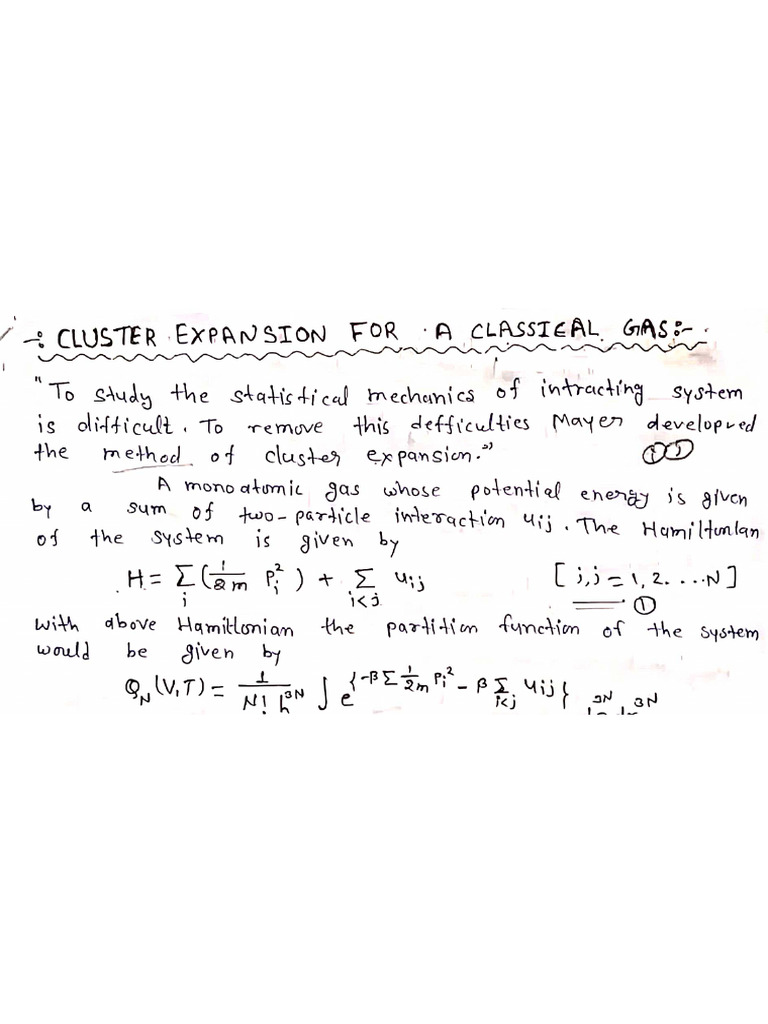 -: CLUSTER EXPANSION FOR A CLASSICAL GAS:-
"To study the statistical mechanics of intracting system
is difficult. To remove this defficulties Mayer developved
the method of cluster expansion."
A monoatomic gas whose potential energy is given
by a sum of two-particle interaction uij. The Hamiltonian
of the system is given by
H = Σi (1/2m Pi²) + Σi<j uij [i,j = 1,2....N]
①
with above Hamiltonian the partition function of the system
would be given by
QN(V,T) = 1/N! h³ᴺ ∫ e{-βΣ 1/2m Pi² - β Σi<j uij}